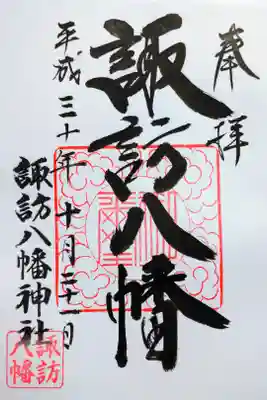 奉拝
諏訪八幡
平成三十年十月三十一日
諏訪八幡神社
諏訪
八幡